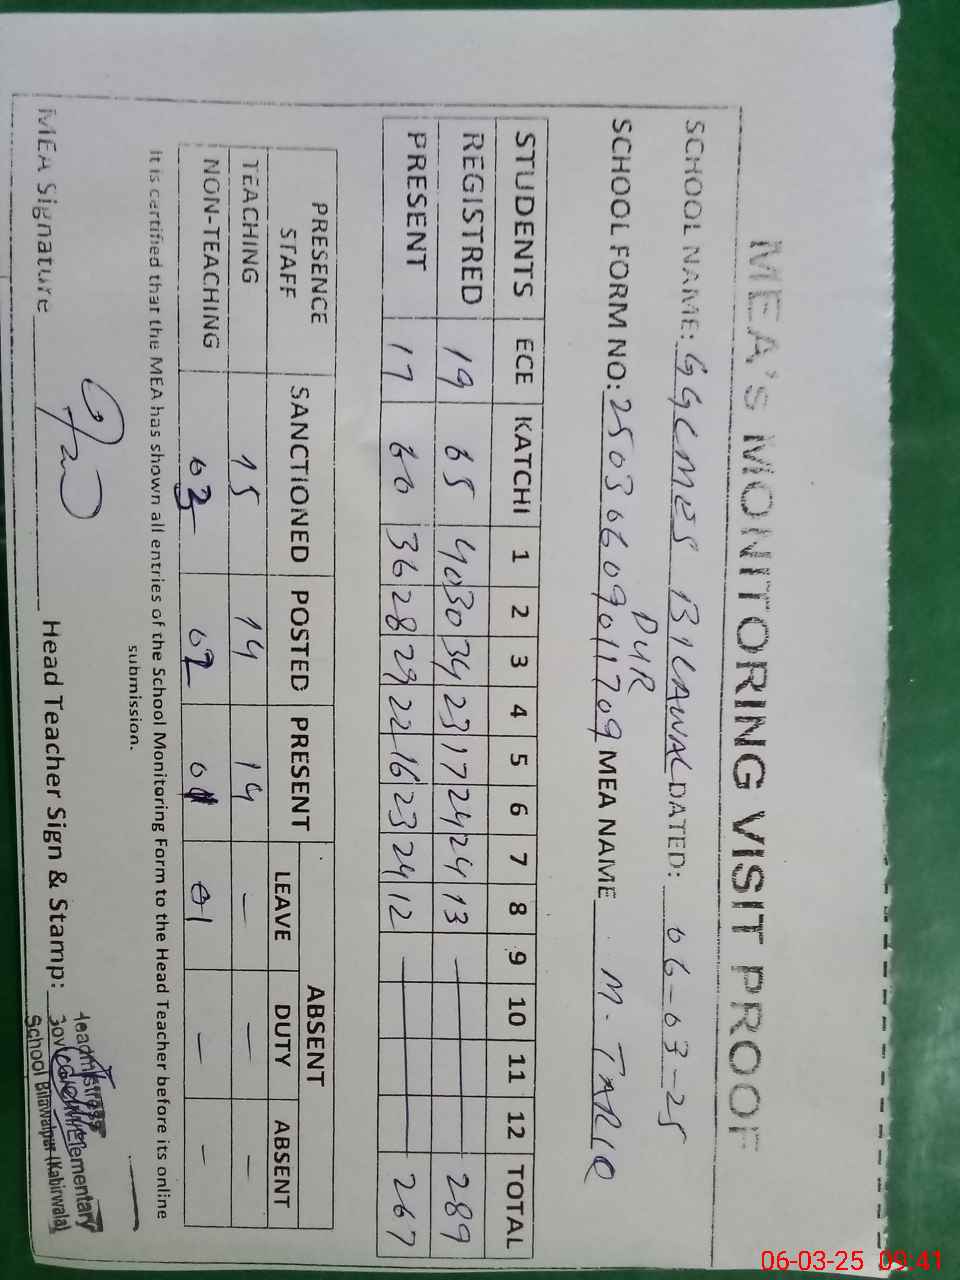 MEA's MONITORING VISIT PROOF
SCHOOL NAME: GGCMES BILAWAL DATED: 06-03-25
PUR
SCHOOL FORM NO: 25036609011709 MEA NAME M. TARIQ
STUDENTS ECE KATCHI 1 2 3 4 5 6 7 8 9 10 11 12 TOTAL
REGISTRED 19 65 40 30 34 23 17 24 24 13 289
PRESENT 17 60 36 28 29 22 16 23 24 12 267
PRESENCE STAFF SANCTIONED POSTED PRESENT ABSENT
LEAVE DUTY ABSENT
TEACHING 15 14 14 - - -
NON-TEACHING 03 02 01 01 - -
It is certified that the MEA has shown all entries of the School Monitoring Form to the Head Teacher before its online
submission.
MEA Signature Head Teacher Sign & Stamp:
Headmistress
Govt Elementary
School Bilawalpur (Kabirwala)
06-03-25 09:41